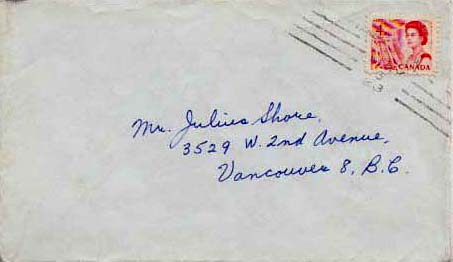 4
CANADA
Mr. Julius Shore,
3529 W. 2nd Avenue,
Vancouver 8, B.C.